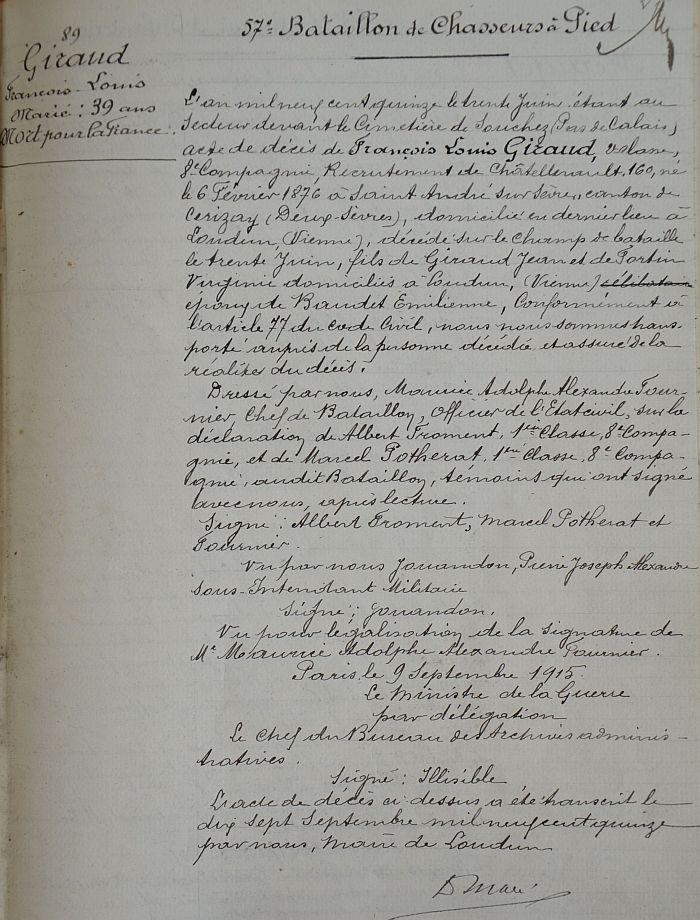 57e Bataillon de Chasseurs à Pied
89
Giraud
François-Louis
Marié : 39 ans
Mort pour la France.
L'an mil neuf cent quinze le trente Juin étant au
Secteur devant le Cimetière de Souchez (Pas de Calais)
acte de décès de François Louis Giraud, 2e classe,
8e Compagnie, Recrutement de Châtellerault. 160, né
le 6 Février 1876 à Saint André sur Sèvre, canton de
Cerizay (Deux-Sèvres), domicilié en dernier lieu à
Loudun, (Vienne), décédé sur le champ de bataille
le trente Juin, fils de Giraud Jean et de
Virginie domiciliés à Loudun, (Vienne) célibataire
époux de Baudet Emilienne, Conformément à
l'article 77 du code Civil, nous nous sommes trans-
porté auprès de la personne décédée et assuré de la
réalité du décès.
Dressé par nous, Maurice Adolphe Alexandre Four-
nier, Chef de Bataillon, Officier de l'Etat civil, sur la
déclaration de Albert Froment, 1ère Classe, 8e Compa-
gnie, et de Marcel Potherat, 1ère Classe, 8e Compa-
gnie, audit Bataillon, témoins qui ont signé
avec nous, après lecture.
Signé : Albert Froment, Marcel Potherat et
Fournier.
Vu par nous Jouandon, Pierre Joseph Alexandre
Sous-Intendant Militaire
Signé : Jouandon.
Vu pour légalisation de la signature de
Mr Maurice Adolphe Alexandre Fournier.
Paris, le 9 Septembre 1915.
Le Ministre de la Guerre
par délégation
Le Chef du Bureau des Archives adminis-
tratives.
Signé : Illisible
L'acte de décès ci-dessus a été transcrit le
dix sept Septembre mil neuf cent quinze
par nous, Maire de Loudun